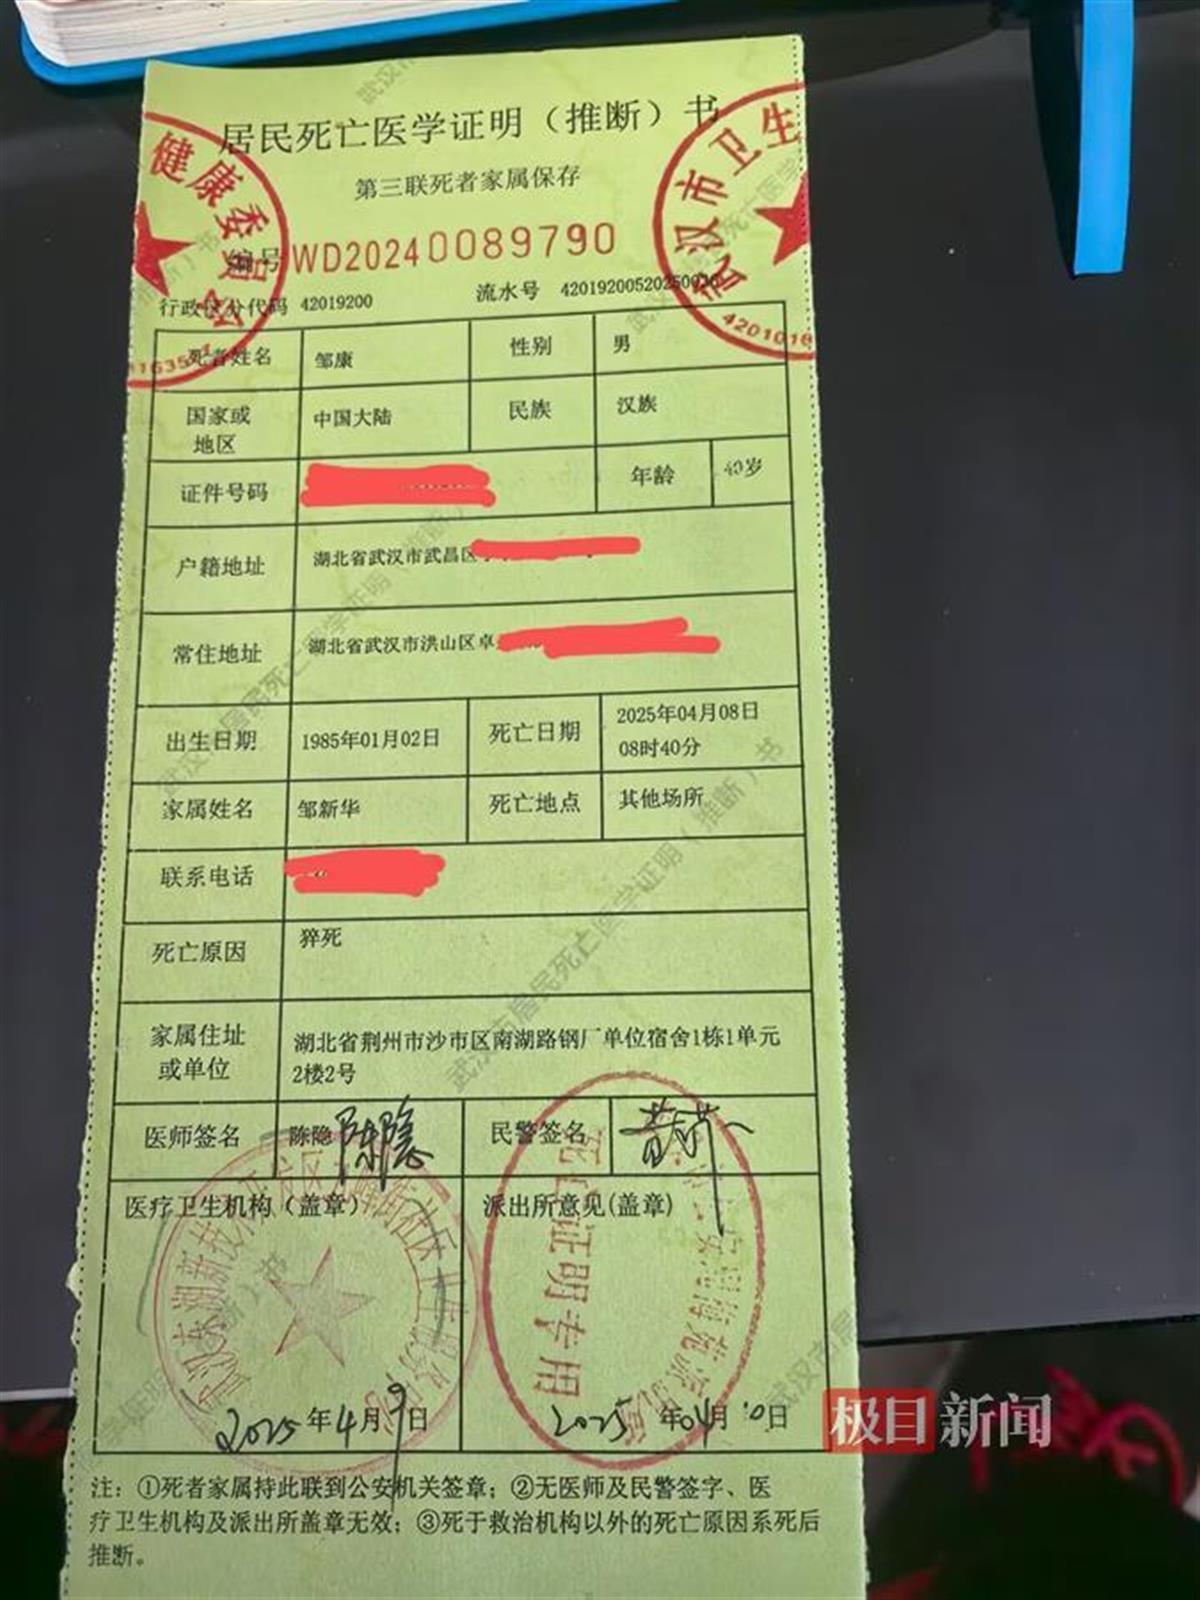 居民死亡医学证明（推断）书
第三联死者家属保存
编号 WD20240089790
行政区分代码 42019200 流水号 42019200520250036
死者姓名 邹康 性别 男
国家或地区 中国大陆 民族 汉族
证件号码 年龄 40岁
户籍地址 湖北省武汉市武昌区
常住地址 湖北省武汉市洪山区卓
出生日期 1985年01月02日 死亡日期 2025年04月08日
08时40分
家属姓名 邹新华 死亡地点 其他场所
联系电话
死亡原因 猝死
家属住址或单位 湖北省荆州市沙市区南湖路钢厂单位宿舍1栋1单元
2楼2号
医师签名 陈隐 陈隐 民警签名
医疗卫生机构（盖章） 派出所意见(盖章)
死亡证明专用
2025年4月9日 2025年04月10日
注：①死者家属持此联到公安机关签章；②无医师及民警签字、医
疗卫生机构及派出所盖章无效；③死于救治机构以外的死亡原因系死后
推断。
健康委员会
武汉市卫生
极目新闻